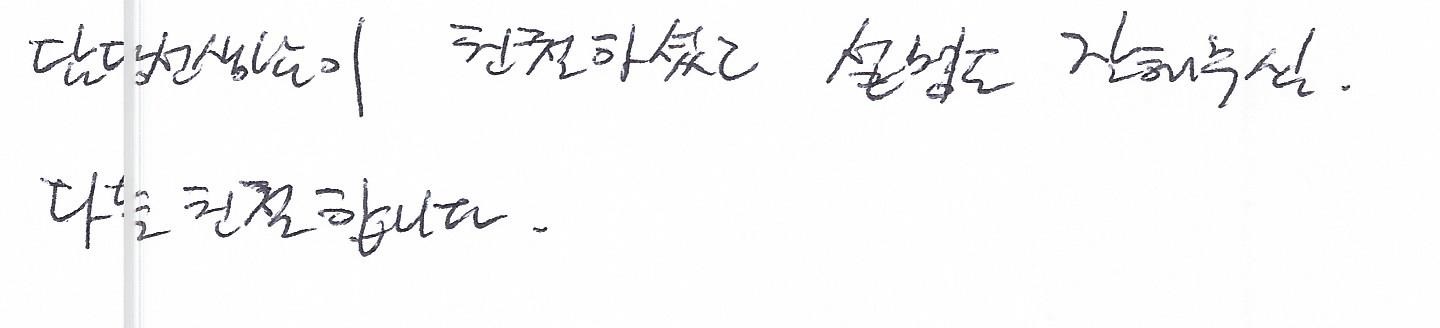 담당선생님이 친절하셨고 설명도 잘해주심.
다들 친절합니다.